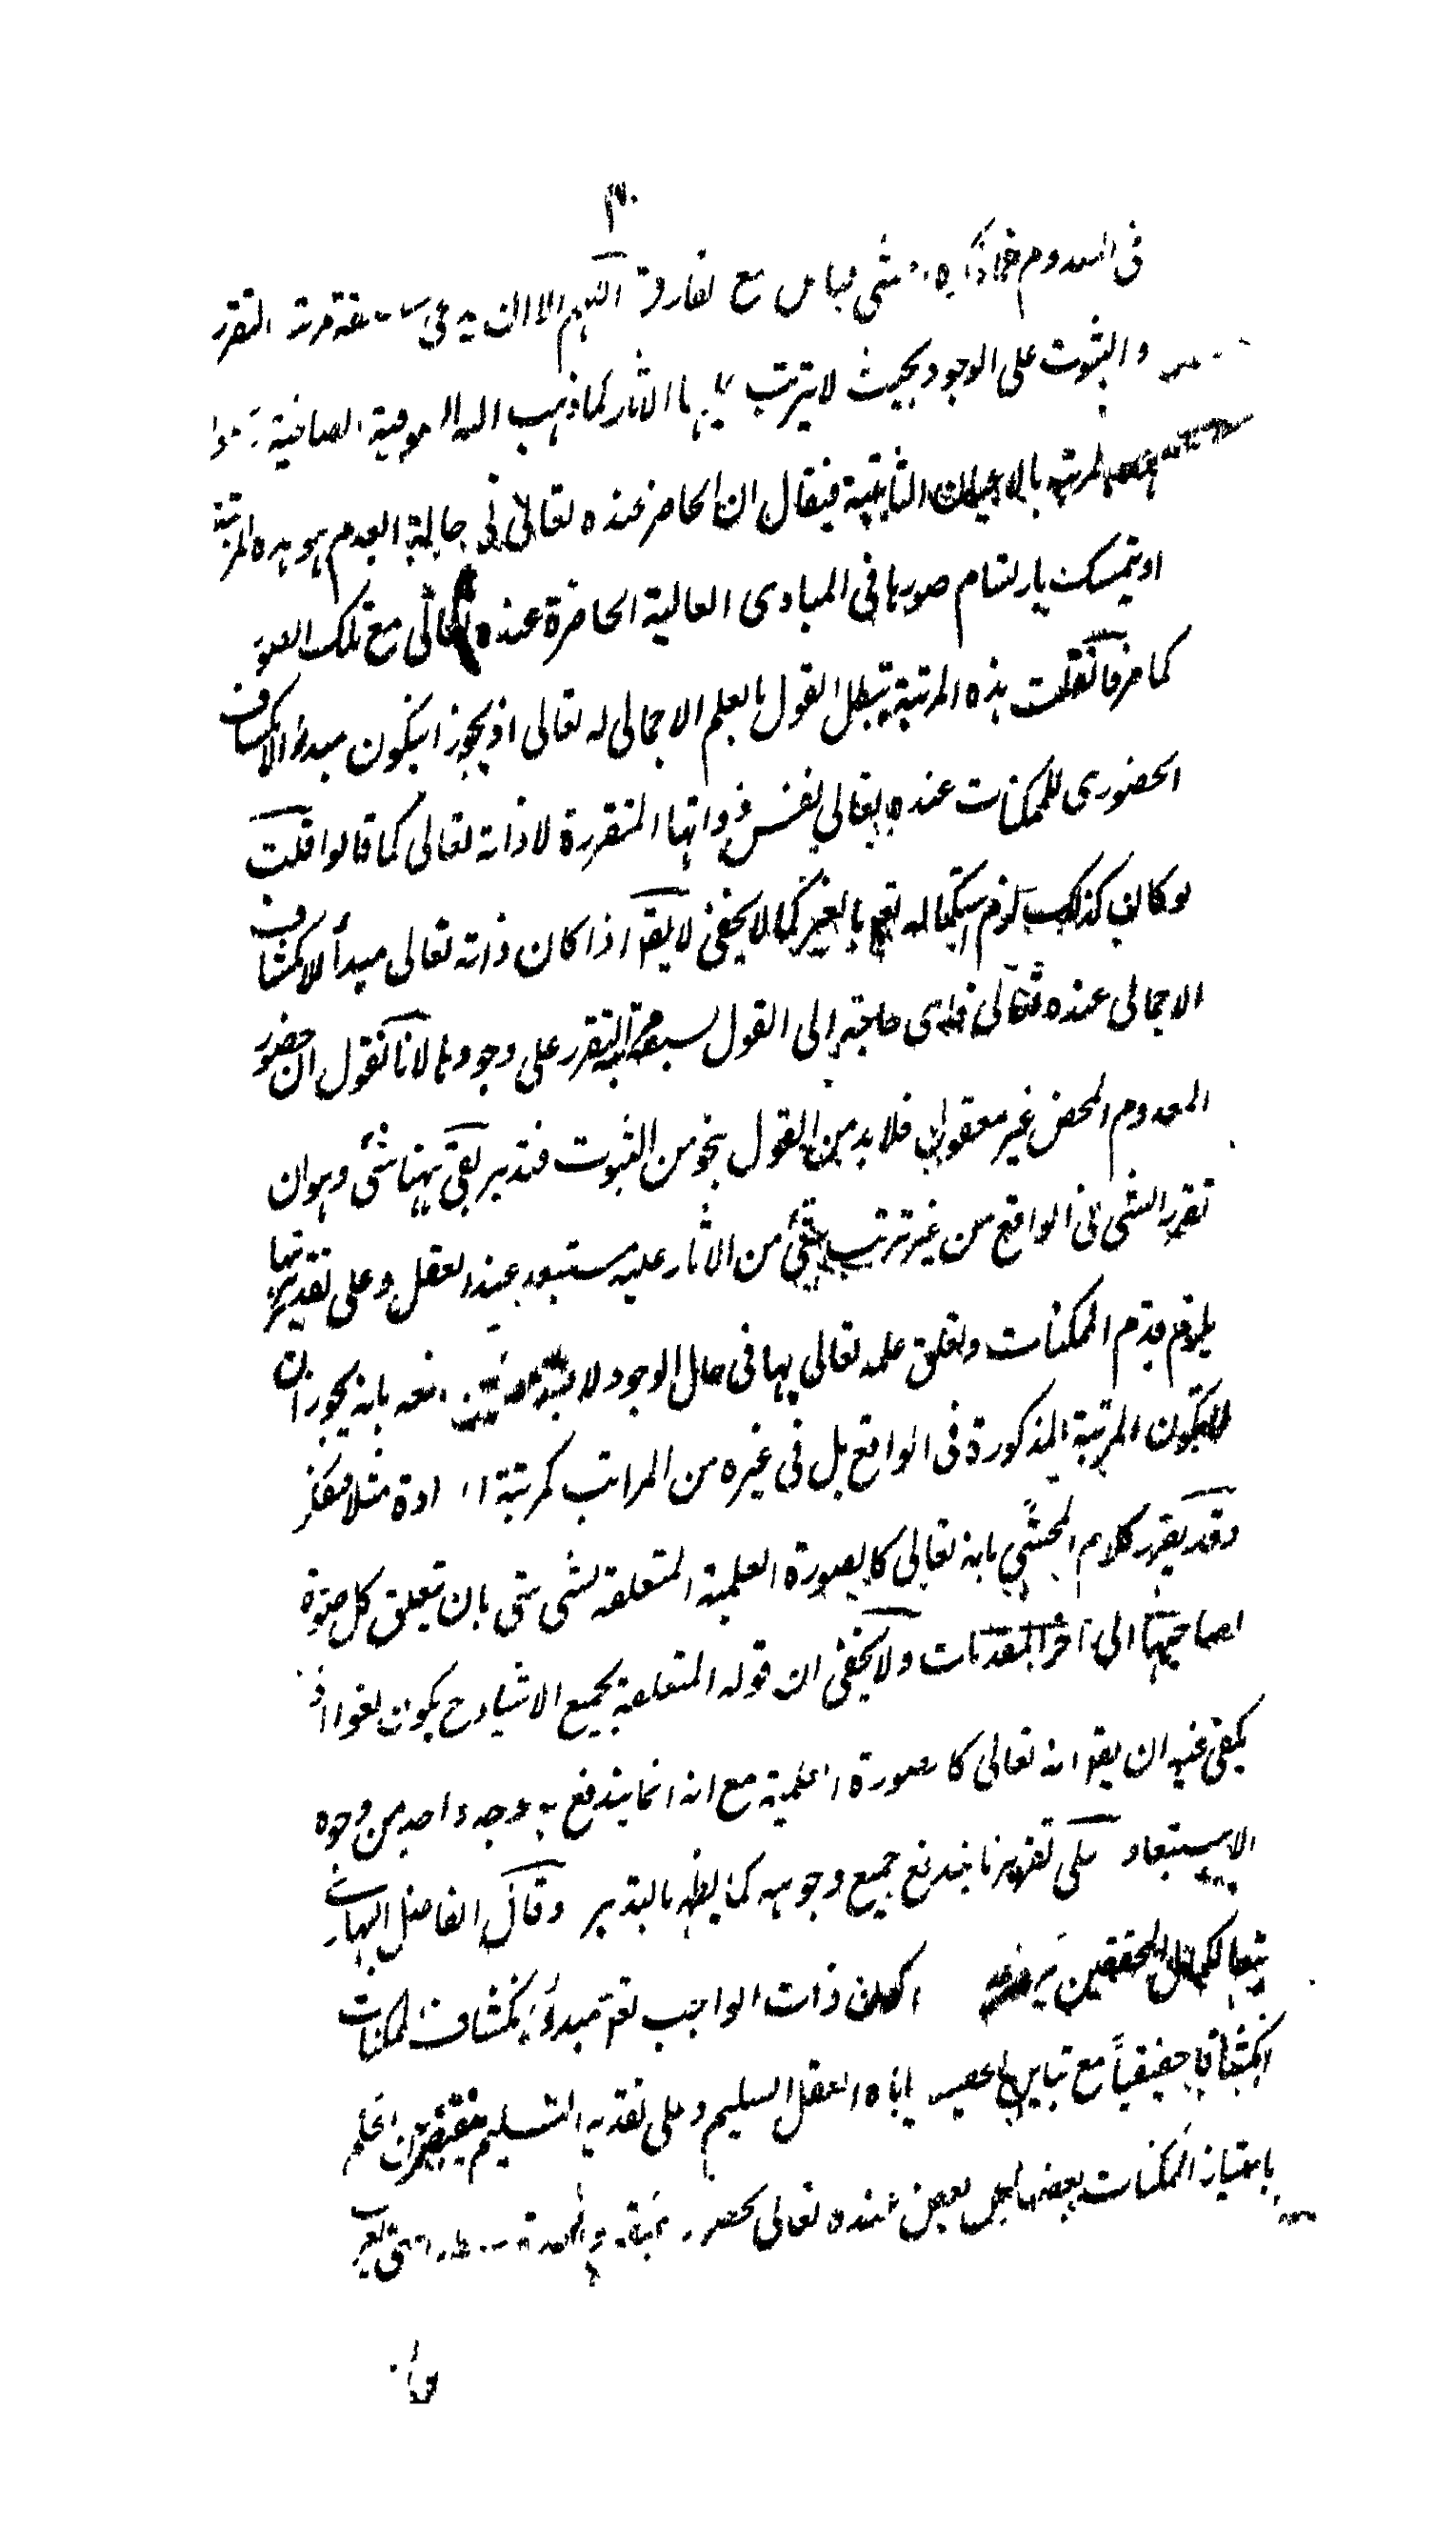 في المعدوم قياس مع الفارق اللهم الا ان يدعي سابقة مرتبة التقرر
والثبوت على الوجود بحيث لا يترتب عليها الاثار كما ذهب اليه الصوفية الصافية
المرتبة بالاعيان الثابتة فيقال ان الحاضر عنده تعالى في حالة العدم هو هذه المرتبة
او يتمسك بارتسام صورها في المبادى العالية الحاضرة عنده تعالى مع تلك الصور
كما مر فان قلت هذه المرتبة تبطل القول بالعلم الاجمالى له تعالى اذ يجوز ان يكون مبدأ الانكشاف
الحضورى للممكنات عنده تعالي نفس ذواتها المتقررة لا ذاته تعالى كما قالوا قلت
لو كان كذلك لزم استكماله تعم بالغير كما لا يخفى لا يقو اذا كان ذاته تعالى مبدأ للانكشاف
الاجمالى عنده تعالى فاى حاجة إلى القول بسبق مرتبة التقرر على وجودها لانا نقول ان حضور
المعدوم المحض غير معقول فلا بد من القول بنحو من الثبوت فتدبر بقى ههنا شئ وهو ان
تقرر الشى فى الواقع من غير ترتب شئ من الاثار عليه مستبعد عند العقل وعلى تقديرها
يلزم قدم الممكنات وتعلق علمه تعالى بها فى حال الوجود دفعه بانه يجوز ان
لا يكون المرتبة المذكورة فى الواقع بل فى غيره من المراتب كمرتبة مثلا فتفكر
وقد يقرر كلام المحشي بانه تعالى كالصورة العلمية المتعلقة بشى شى بان تتعلق كل صورة
لصاحبها الى آخر المقدمات ولا يخفى ان قوله المتعلقة بجميع الاشياء ح يكون لغوا اذ
يكفى فيه ان يقو انه تعالى كالصورة العلمية مع انه انما يندفع به وجه واحد من وجوه
الاستبعاد وعلى تقريرنا يندفع جميع وجوهه كما يظهر بالتدبر وقال الفاضل البهارى
تبعا لكمال المحققين كون ذات الواجب تعم مبدأ لانكشاف الممكنات
انكشافا حقيقياً مع تباين ياباه العقل السليم وعلى تقدير التسليم العلم
بامتياز الممكنات بعضها عن بعض عنده تعالى